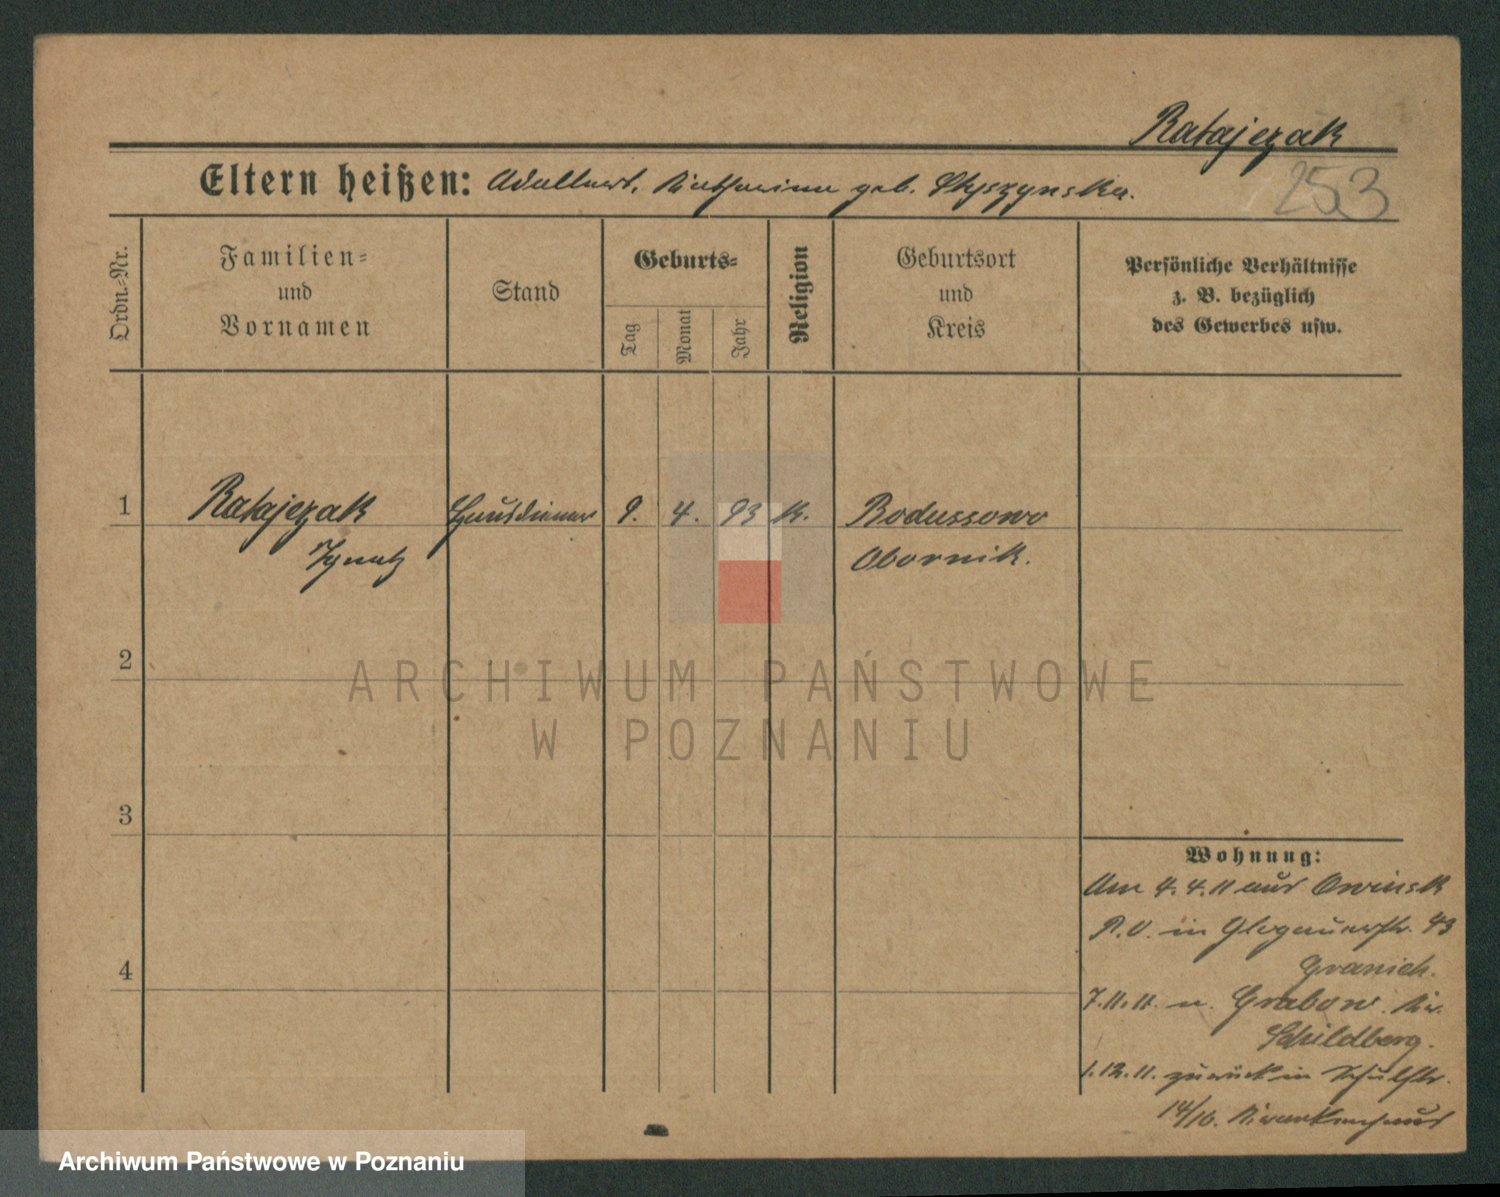 Ratajczak
Eltern heißen: Adalbert, Katharina geb. Styszynska.
253
Ordn.-Nr.
Familien-
und
Vornamen
Stand
Geburts-
Tag
Monat
Jahr
Religion
Geburtsort
und
Kreis
Persönliche Verhältnisse
z. B. bezüglich
des Gewerbes usw.
1 Ratajczak Hausdiener 9. 4. 93 K. Bodussowo
Ignatz Obornik.
2
3
4
Wohnung:
Am 4.4.11 aus Owinsk
P.O. in Glogauerstr. 43
7.11.11. n. Grabow. Kr.
Schildberg.
1.12.11. zurück in Schulstr.
14/16. Krankenhaus
ARCHIWUM PAŃSTWOWE
W POZNANIU
Archiwum Państwowe w Poznaniu